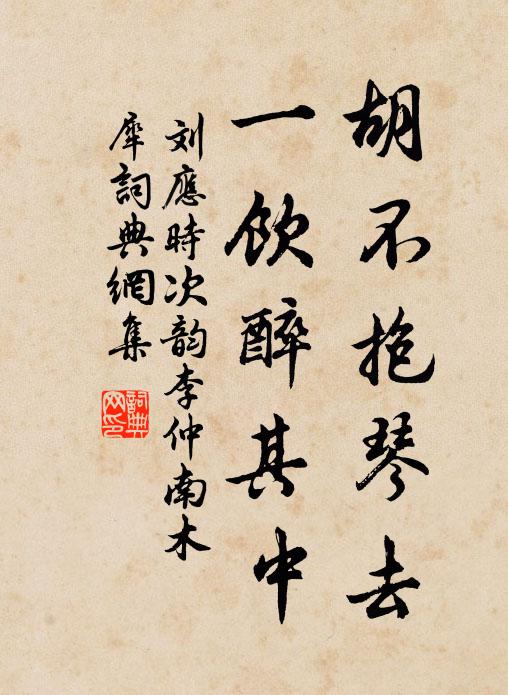 胡不抱琴去
一飲醉其中
刘應時次韵李仲南木
犀詞典網集
詞典网印